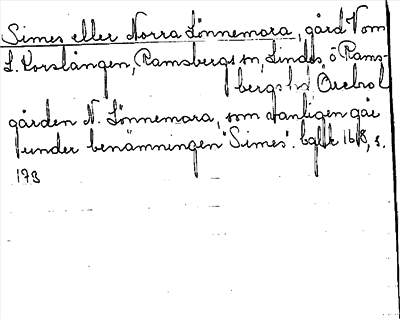 Simes eller Norra Lönnemora, gård V om
L. Korslången, Ramsbergs sn, Lindes o Rams-
bergs hd Örebro l
gården N. Lönnemora, som vanligen går
under benämningen "Simes".
173